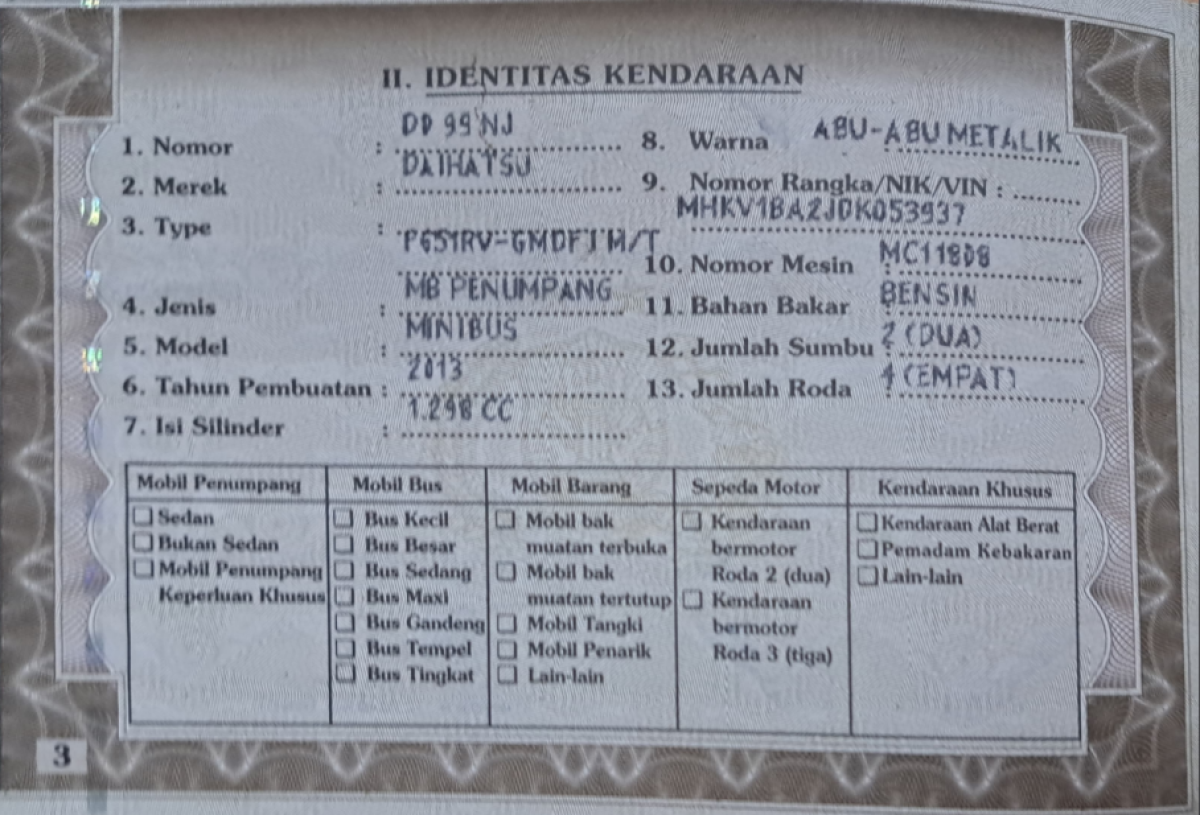 II. IDENTITAS KENDARAAN
1. Nomor : DD 99 NJ
2. Merek : DAIHATSU
3. Type : F651RV-GMDFJ M/T
4. Jenis : MB PENUMPANG
5. Model : MINIBUS
6. Tahun Pembuatan : 2013
7. Isi Silinder : 1.298 CC
8. Warna ABU-ABU METALIK
9. Nomor Rangka/NIK/VIN :
MHKV1BA2JDK053937
10. Nomor Mesin : MC11808
11. Bahan Bakar : BENSIN
12. Jumlah Sumbu : 2 (DUA)
13. Jumlah Roda : 4 (EMPAT)
Mobil Penumpang
Sedan
Bukan Sedan
Mobil Penumpang
Keperluan Khusus
Mobil Bus
Bus Kecil
Bus Besar
Bus Sedang
Bus Maxi
Bus Gandeng
Bus Tempel
Bus Tingkat
Mobil Barang
Mobil bak
muatan terbuka
Mobil bak
muatan tertutup
Mobil Tangki
Mobil Penarik
Lain-lain
Sepeda Motor
Kendaraan
bermotor
Roda 2 (dua)
Kendaraan
bermotor
Roda 3 (tiga)
Kendaraan Khusus
Kendaraan Alat Berat
Pemadam Kebakaran
Lain-lain
3